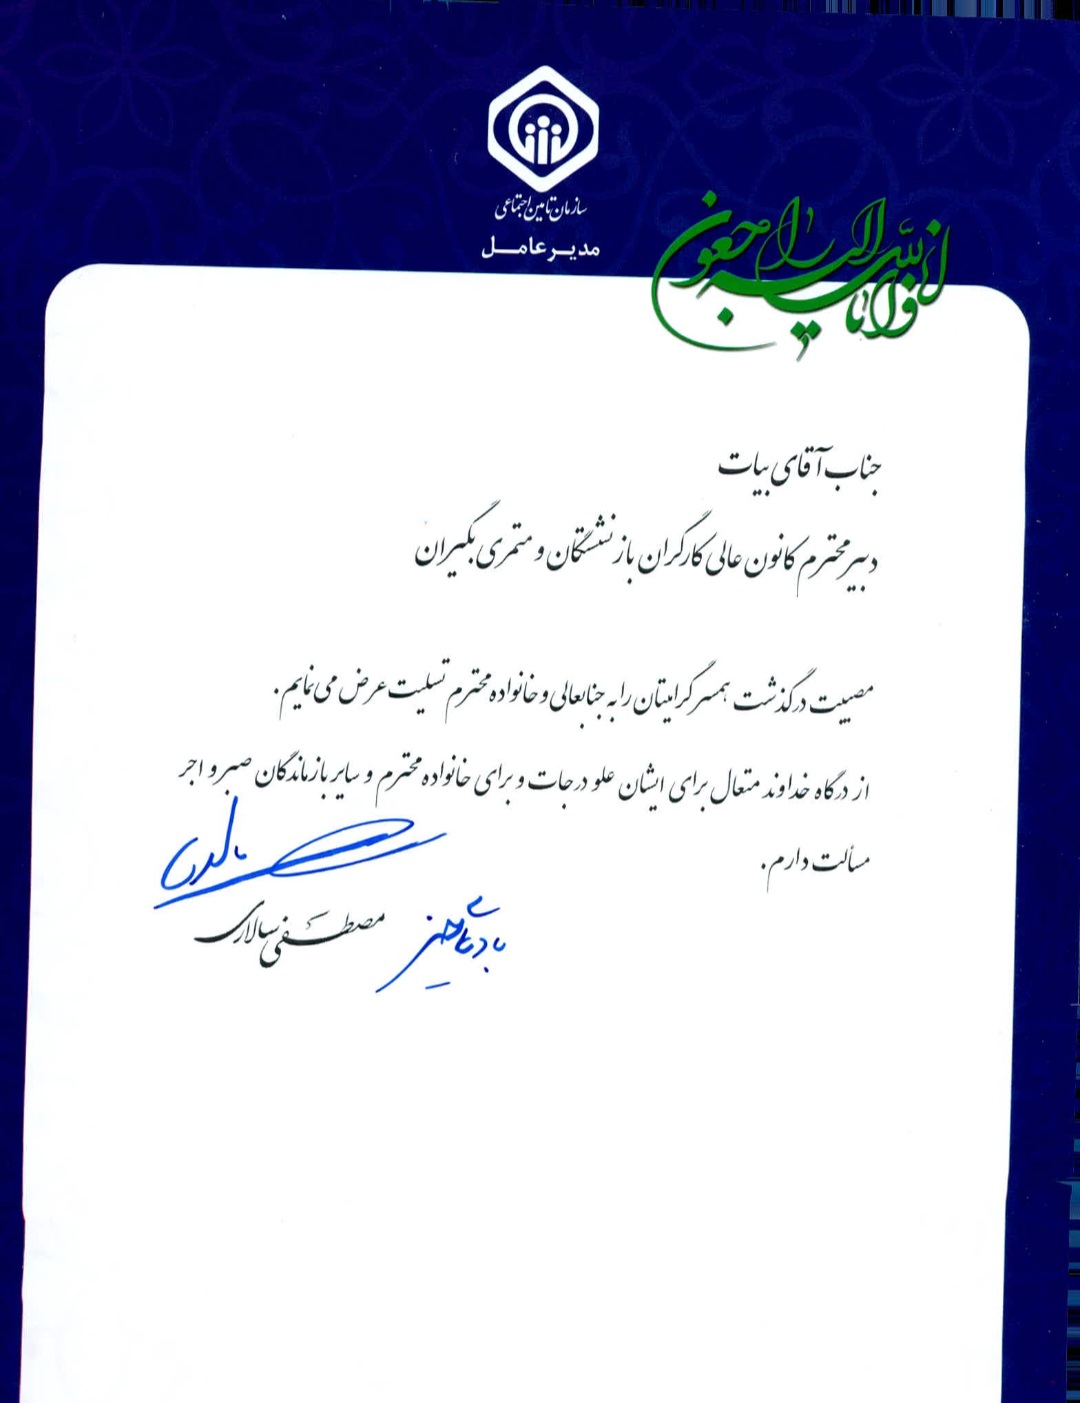 سازمان تأمین اجتماعی
مدیرعامل
انا لله و انا الیه راجعون
جناب آقای بیات
دبیر محترم کانون عالی کارگران بازنشستگان و مستمری بگیران
مصیبت درگذشت همسر گرامیتان را به جنابعالی و خانواده محترم تسلیت عرض می نمایم.
از درگاه خداوند متعال برای ایشان علو درجات و برای خانواده محترم و سایر بازماندگان صبر و اجر
مسألت دارم.
مصطفی سالاری
با دعای خیر